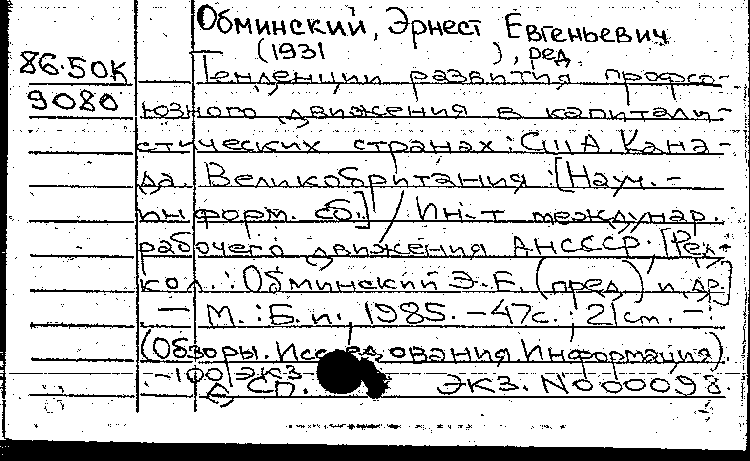 Обминский, Эрнест Евгеньевич
(1931 ), ред.
86.50К Тенденции развития профсо-
9080 юзного движения в капитали-
стических странах: США. Кана-
да. Великобритания: [Науч.-
информ. сб.] / Ин-т междунар.
рабочего движения АН СССР; [Ред-
кол.: Обминский Э.Е. (пред.) и др.]
— М.: Б.и., 1985. - 47с.; 21см. -
(Обзоры. Исследования. Информация).
- 100 экз.
Д СП. ЭКЗ. N000098.